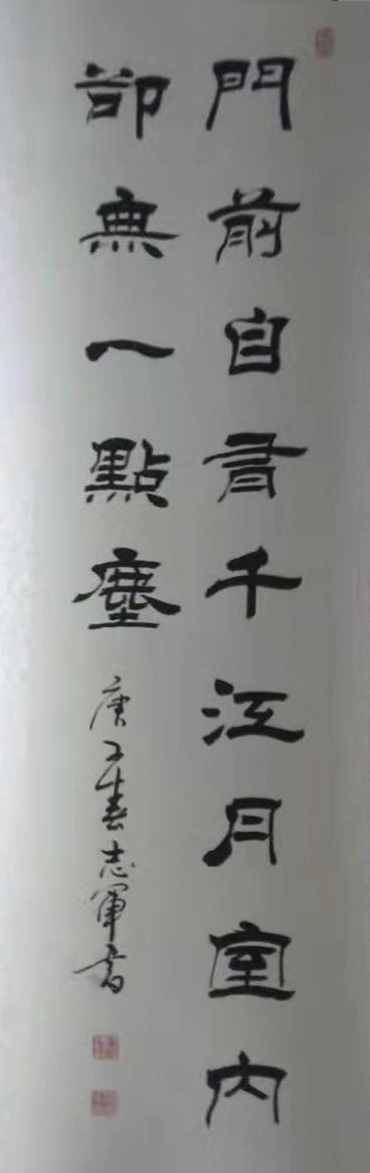 門前自有千江月室内
卻無一點塵
庚子春志軍書